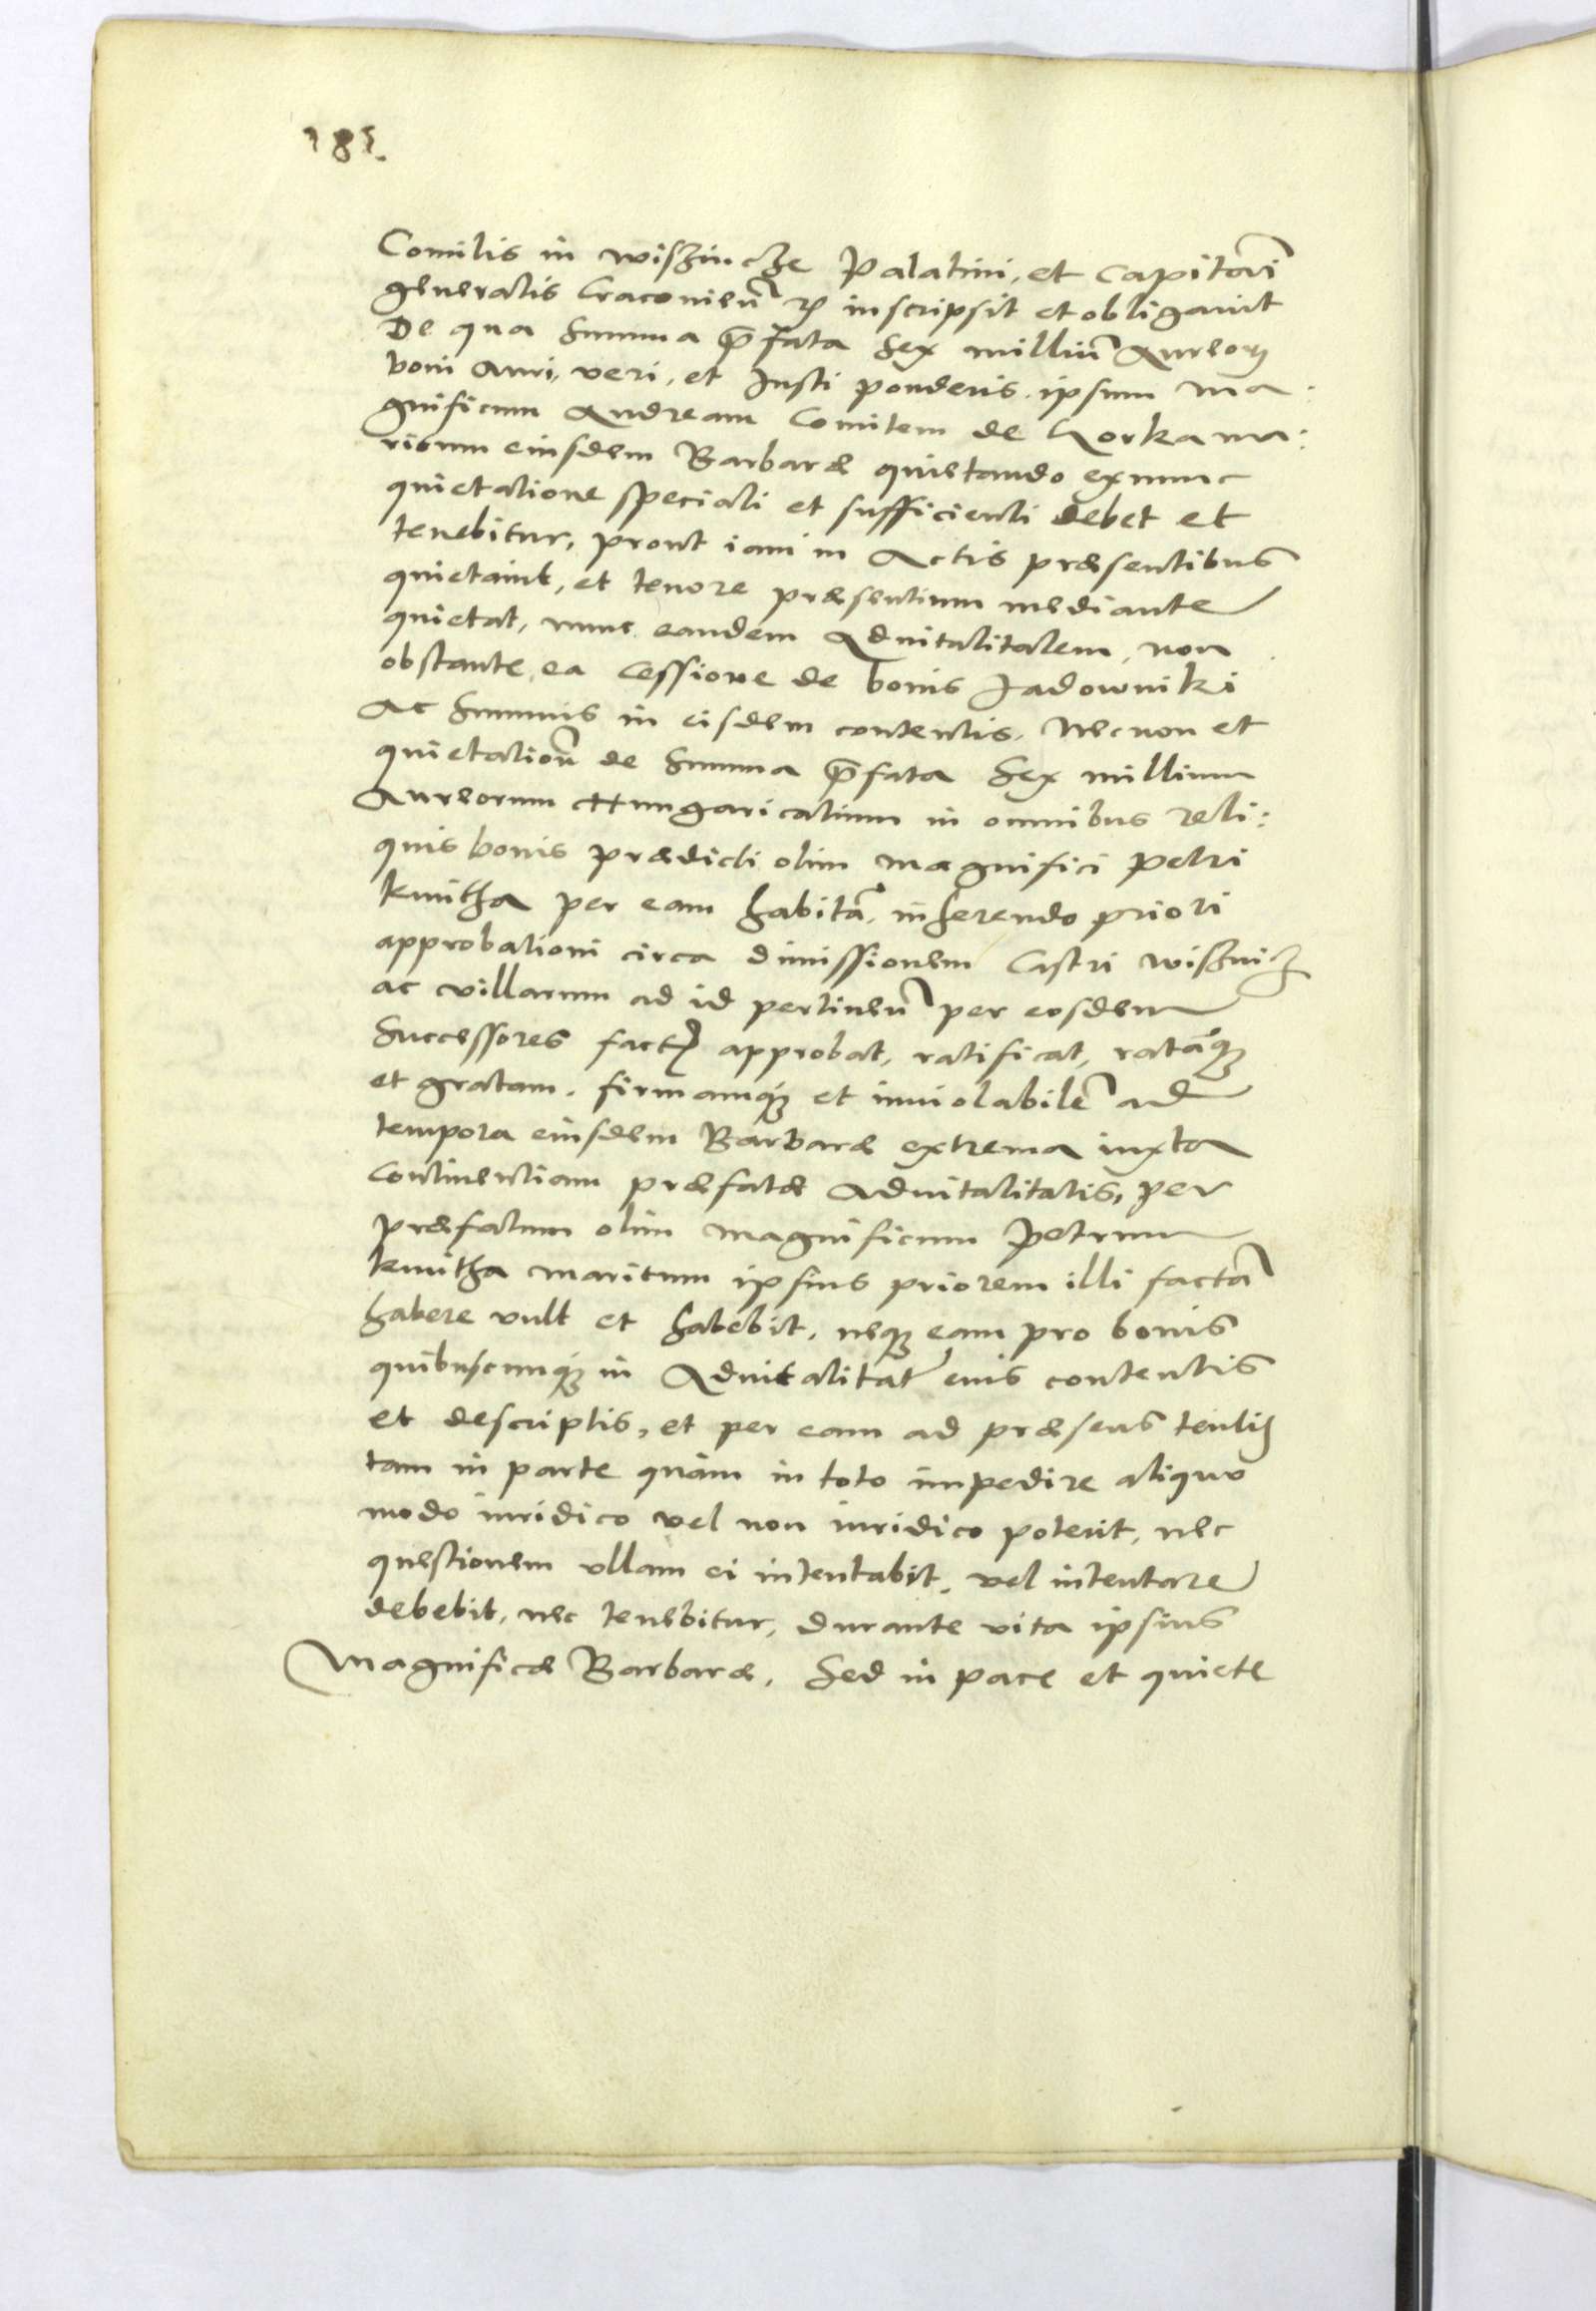 181.
Comitis in wiszincze Palatini, et Capitanī
generalis Cracovieñ inscripsit et obligavit
De qua summa p̄fata sex milliū Aureoꝝ
boni Auri, veri, et Iusti ponderis. ipsum ma:
gnificum Andream Comitem de Gorka ma:
ritum eiusdem Barbaræ quietando ex nunc
quietatione speciali et sufficienti debet et
tenebitur, prout iam in Actis præsentibus
quietavit, et tenore præsentium mediante
quietat, nunc eandem Advitalitatem, non
obstante ea Cessione de bonis Jadowniki
Ac summis in eisdem contentis, Necnon et
quietationē de summa p̄fata sex millium
Aureorum Hungaricalium in omnibus reli:
quis bonis prædicti olim Magnifici Petri
kmitha per eam habitā, inherendo priori
approbationi circa dimissionem Castri wisznicz
ac villarum ad id pertineñ per eosdem
successores fact approbat, ratificat, ratāqꝫ
et gratam, firmamqꝫ et inviolabilē ad
tempora eiusdem Barbaræ extrema iuxta
Continentiam præfatæ Advitalitatis, per
præfatum olim Magnificum Petrum
kmitha maritum ipsius priorem illi factā
habere vult et habebit, neqꝫ eam pro bonis
quibuscunqꝫ in Advitalitate eius contentis
et descriptis, et per eam ad præsens tentis
tam in parte quàm in toto impedire aliquo
modo iuridico vel non iuridico poterit, nec
questionem ullam ei intentabit, vel intentare
debebit, nec tenebitur, durante vita ipsius
Magnificæ Barbaræ, Sed in pace et quiete